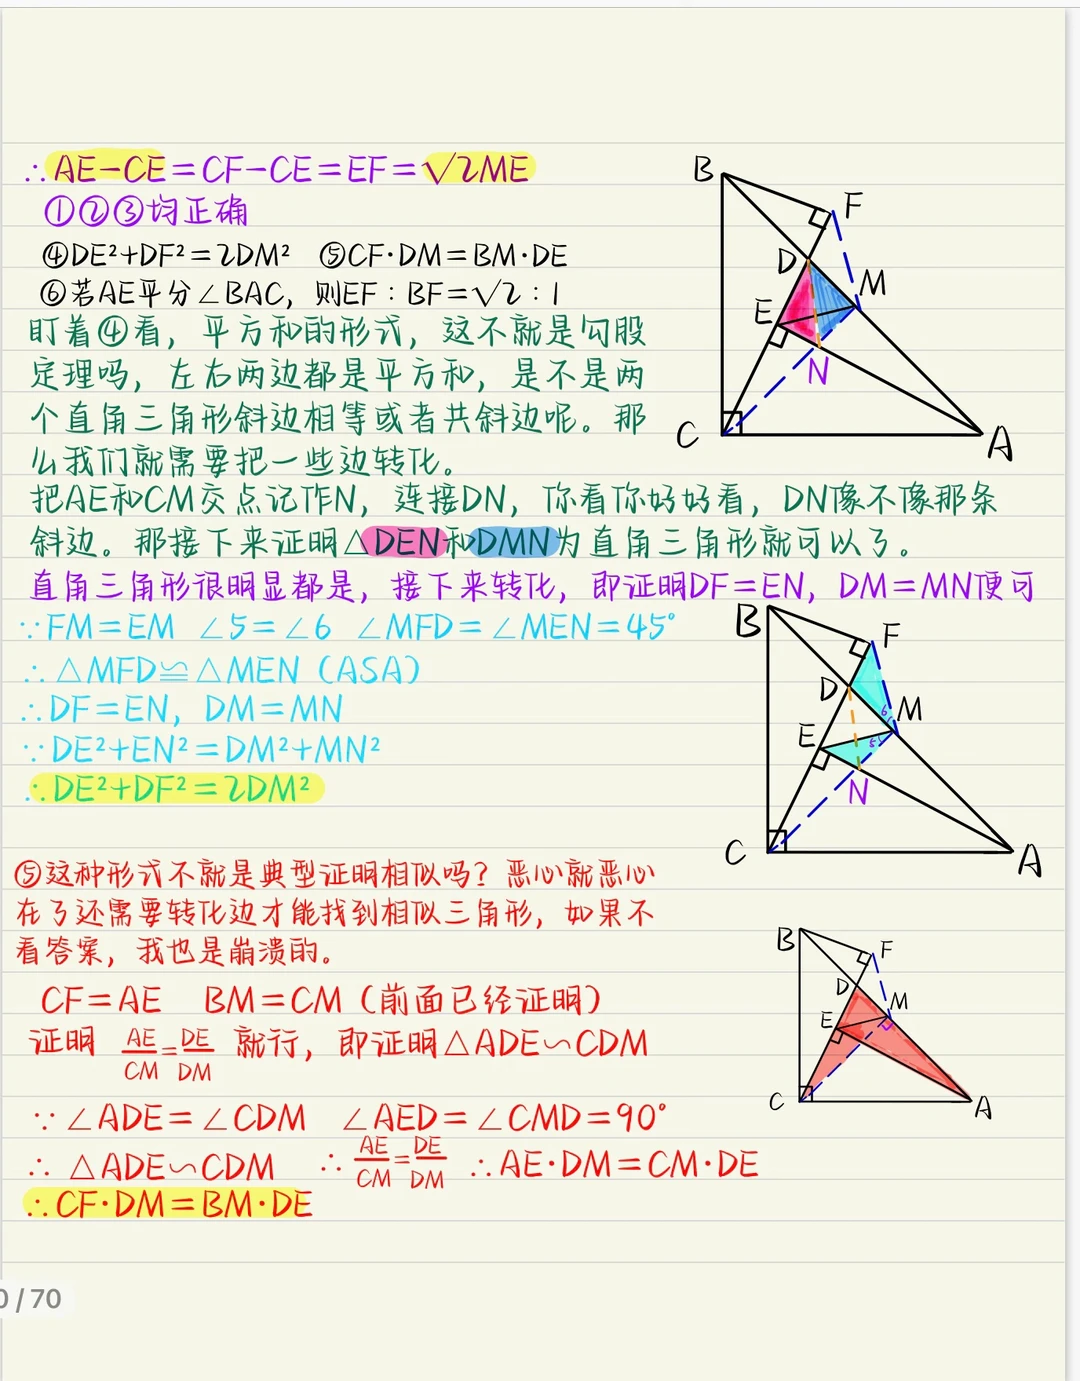 ∴AE-CE=CF-CE=EF=√2ME
①②③均正确
④DE²+DF²=2DM² ⑤CF·DM=BM·DE
⑥若AE平分∠BAC，则EF:BF=√2:1
盯着④看，平方和的形式，这不就是勾股
定理吗，左右两边都是平方和，是不是两
个直角三角形斜边相等或者共斜边呢。那
么我们就需要把一些边转化。
把AE和CM交点记作N，连接DN，你看你好好看，DN像不像那条
斜边。那接下来证明△DEN和DMN为直角三角形就可以了。
直角三角形很明显都是，接下来转化，即证明DF=EN，DM=MN便可
∵FM=EM ∠5=∠6 ∠MFD=∠MEN=45°
∴△MFD≌△MEN（ASA）
∴DF=EN，DM=MN
∵DE²+EN²=DM²+MN²
∴DE²+DF²=2DM²
⑤这种形式不就是典型证明相似吗？恶心就恶心
在了还需要转化边才能找到相似三角形，如果不
看答案，我也是崩溃的。
CF=AE BM=CM（前面已经证明）
证明 AE/CM=DE/DM 就行，即证明△ADE∽CDM
∵∠ADE=∠CDM ∠AED=∠CMD=90°
∴△ADE∽CDM ∴AE/CM=DE/DM ∴AE·DM=CM·DE
∴CF·DM=BM·DE
B
F
D
M
E
N
C
A
B
F
D
6
M
E
5
N
C
A
B
F
D
M
E
C
A
0/70